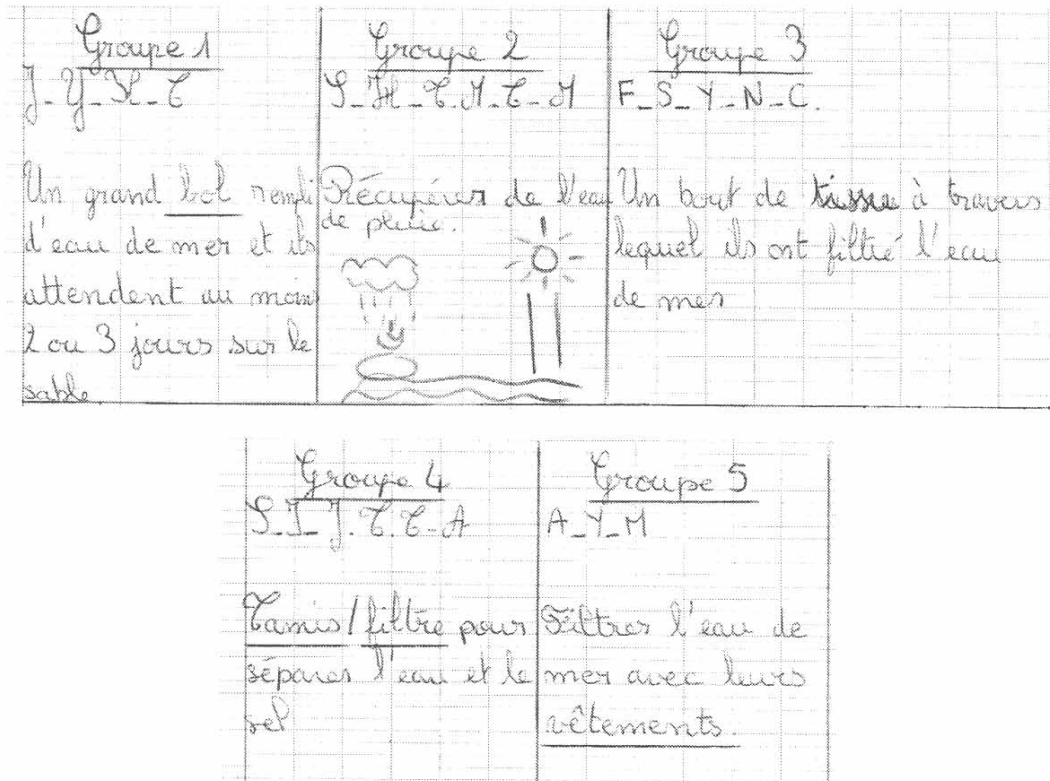 Groupe 1
J_Y_K_C
Un grand bol rempli
d'eau de mer et ils
attendent au moins
2 ou 3 jours sur le
sable
Groupe 2
S_H_T.M_T_M
Récupérer de l'eau
de pluie.
Groupe 3
F_S_Y_N_C.
Un bout de tissu à travers
lequel ils ont filtré l'eau
de mer
Groupe 4
S_I_J.T.T_A
Tamis/filtre pour
séparer l'eau et le
sel
Groupe 5
A_Y_M
Filtrer l'eau de
mer avec leurs
vêtements.